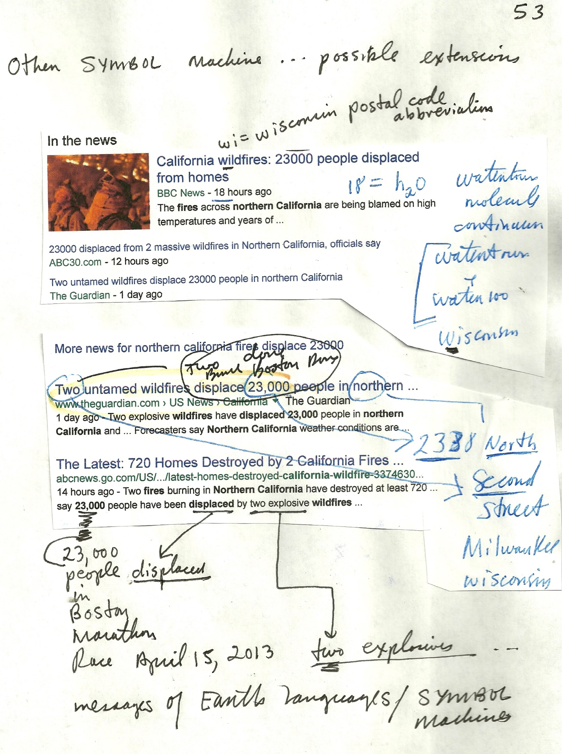 53
Other SYMBOL Machine ... possible extensions
wi = wisconsin postal code
abbreviation
In the news
California wildfires: 23000 people displaced
from homes
BBC News - 18 hours ago
The fires across northern California are being blamed on high
temperatures and years of ...
18 = h2O
23000 displaced from 2 massive wildfires in Northern California, officials say
ABC30.com - 12 hours ago
Two untamed wildfires displace 23000 people in northern California
The Guardian - 1 day ago
molecule
continuum
Wisconsin
More news for northern california fires displace 23000
Two
Boston
Two untamed wildfires displace 23,000 people in northern ...
www.theguardian.com › US News › California The Guardian
1 day ago - Two explosive wildfires have displaced 23,000 people in northern
California and ... Forecasters say Northern California weather conditions are...
The Latest: 720 Homes Destroyed by 2 California Fires ...
abcnews.go.com/US/.../latest-homes-destroyed-california-wildfire-3374630...
14 hours ago - Two fires burning in Northern California have destroyed at least 720 ...
say 23,000 people have been displaced by two explosive wildfires ...
North
Second
Street
Milwaukee
wisconsin
23,000
people displaced
in
Boston
Marathon
Race April 15, 2013
two explosives ...
messages of Earth languages / SYMBOL
Machines